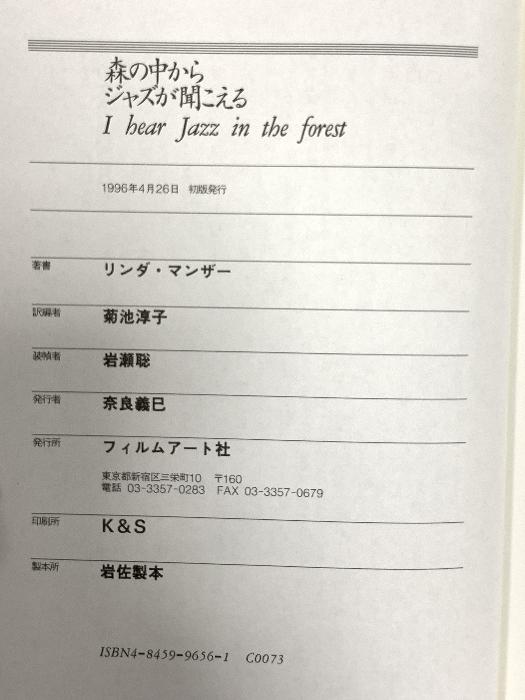 森の中から
ジャズが聞こえる
I hear Jazz in the forest
1996年4月26日 初版発行
著書 リンダ・マンザー
訳編者 菊池淳子
装幀者 岩瀬聡
発行者 奈良義巳
発行所 フィルムアート社
東京都新宿区三栄町10 〒160
電話 03-3357-0283 FAX 03-3357-0679
印刷所 K&S
製本所 岩佐製本
ISBN4-8459-9656-1 C0073